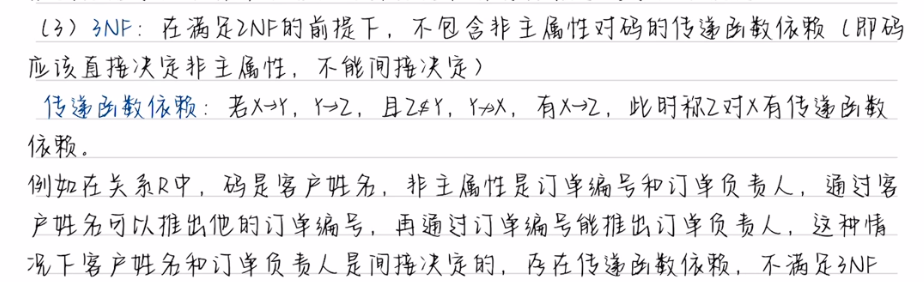 （3）3NF：在满足2NF的前提下，不包含非主属性对码的传递函数依赖（即码
应该直接决定非主属性，不能间接决定）
传递函数依赖：若X→Y，Y→Z，且Z⊄Y，Y↛X，有X→Z，此时称Z对X有传递函数
依赖。
例如在关系R中，码是客户姓名，非主属性是订单编号和订单负责人，通过客
户姓名可以推出他的订单编号，再通过订单编号能推出订单负责人，这种情
况下客户姓名和订单负责人是间接决定的，存在传递函数依赖，不满足3NF